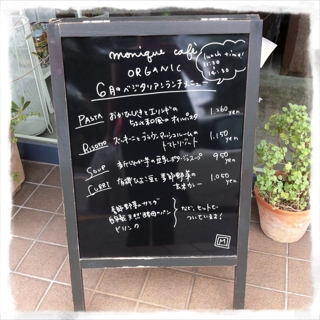 monique cafe
ORGANIC
lunch time!
11:30
16:30
6月のベジタリアンランチメニュー
PASTA
おかひじきとエリンギの
1,260 yen
RISOTTO
ズッキーニとブラウンマッシュルームの
トマトリゾット
1,150 yen
SOUP
豆乳ポタージュスープ
950 yen
CURRY
有機ひよこ豆と季節野菜の
玄米カレー
1,050 yen
季節野菜のサラダ
自家製
パン
ドリンク
など、セットに
ついています!
M